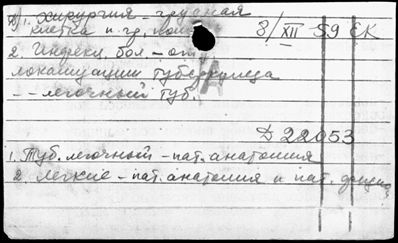 А) 1. хирургия – грудная
клетка и гр. пол
8/XII 59 СК
2. Инфекц. бол. – отд.
локализации туберкулеза
-- – легочный туб.
А
Д 22053
1. Туб. легочный – пат. анатомия
2. легкие – пат. анатомия и пат. физиол